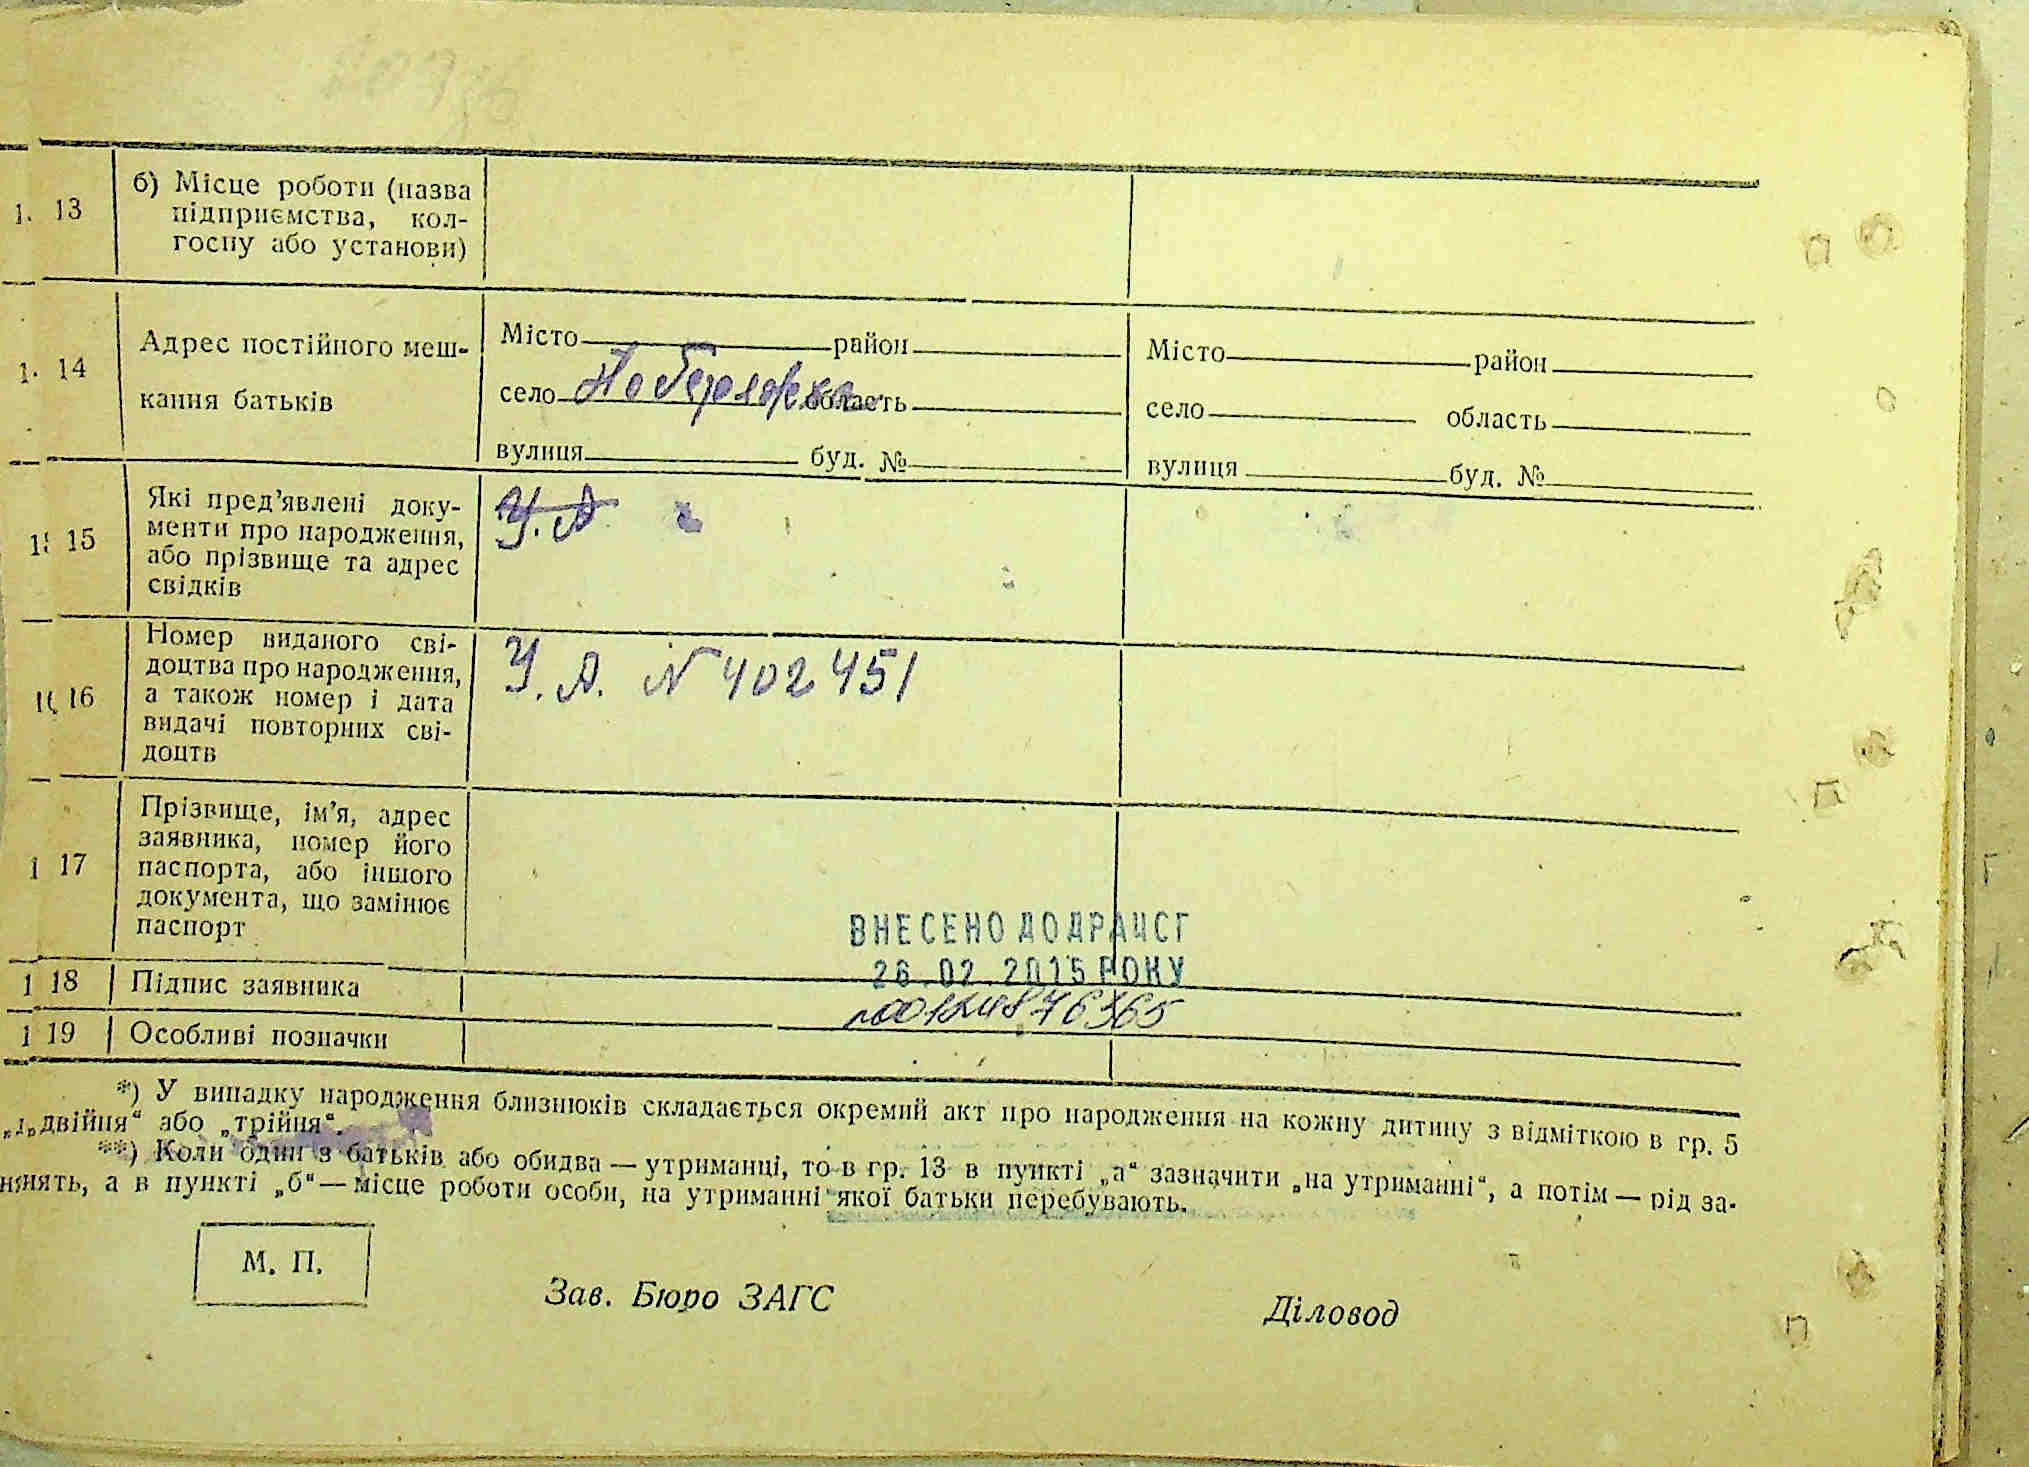 13 б) Місце роботи (назва
підприємства, кол-
госпу або установи)
14 Адрес постійного меш-
кання батьків
Місто район
село область
вулиця буд. №
Місто район
село область
вулиця буд. №
15 Які пред’явлені доку-
менти про народження,
або прізвище та адрес
свідків
У. А
16 Номер виданого сві-
доцтва про народження,
а також номер і дата
видачі повторних сві-
доцтв
У. А. N 402451
17 Прізвище, ім’я, адрес
заявника, номер його
паспорта, або іншого
документа, що замінює
паспорт
ВНЕСЕНО ДО ДРАЦСГ
26.02.2015 РОКУ
18 Підпис заявника
19 Особливі позначки
*) У випадку народження близнюків складається окремий акт про народження на кожну дитину з відміткою в гр. 5
„двійня“ або „трійня“.
**) Коли один з батьків або обидва — утриманці, то в гр. 13 в пункті „а“ зазначити „на утриманні“, а потім — рід за-
нять, а в пункті „б“ — місце роботи особи, на утриманні якої батьки перебувають.
М. П.
Зав. Бюро ЗАГС
Діловод